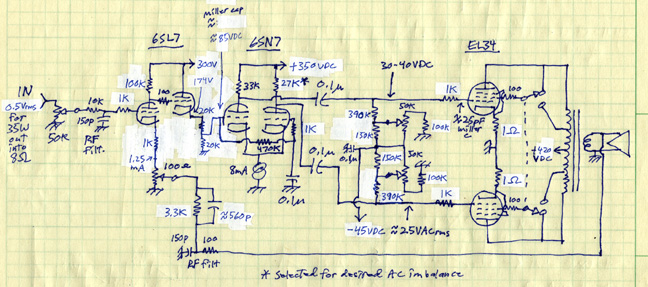 miller cap
≈
≈85VDC
6SL7
6SN7
EL34
300V
174V
+350VDC
30-40VDC
100K
100
33K
27K*
0.1µ
1K
100
IN
0.5Vrms
for
35W
out
into
8Ω
10K
1K
20K
1K
390K
50K
≈25pF
miller
C
150p
50K
RF
Filt.
20K
470K
150K
100K
1Ω
1K
0.1µ
0.1µ
+420
VDC
1.25
mA
100Ω
8mA
150K
50K
100K
1Ω
0.1µ
390K
1K
100
3.3K
≈560p
-45VDC
≈2.5VACrms
150p
100
RF filt
* selected for desired AC imbalance